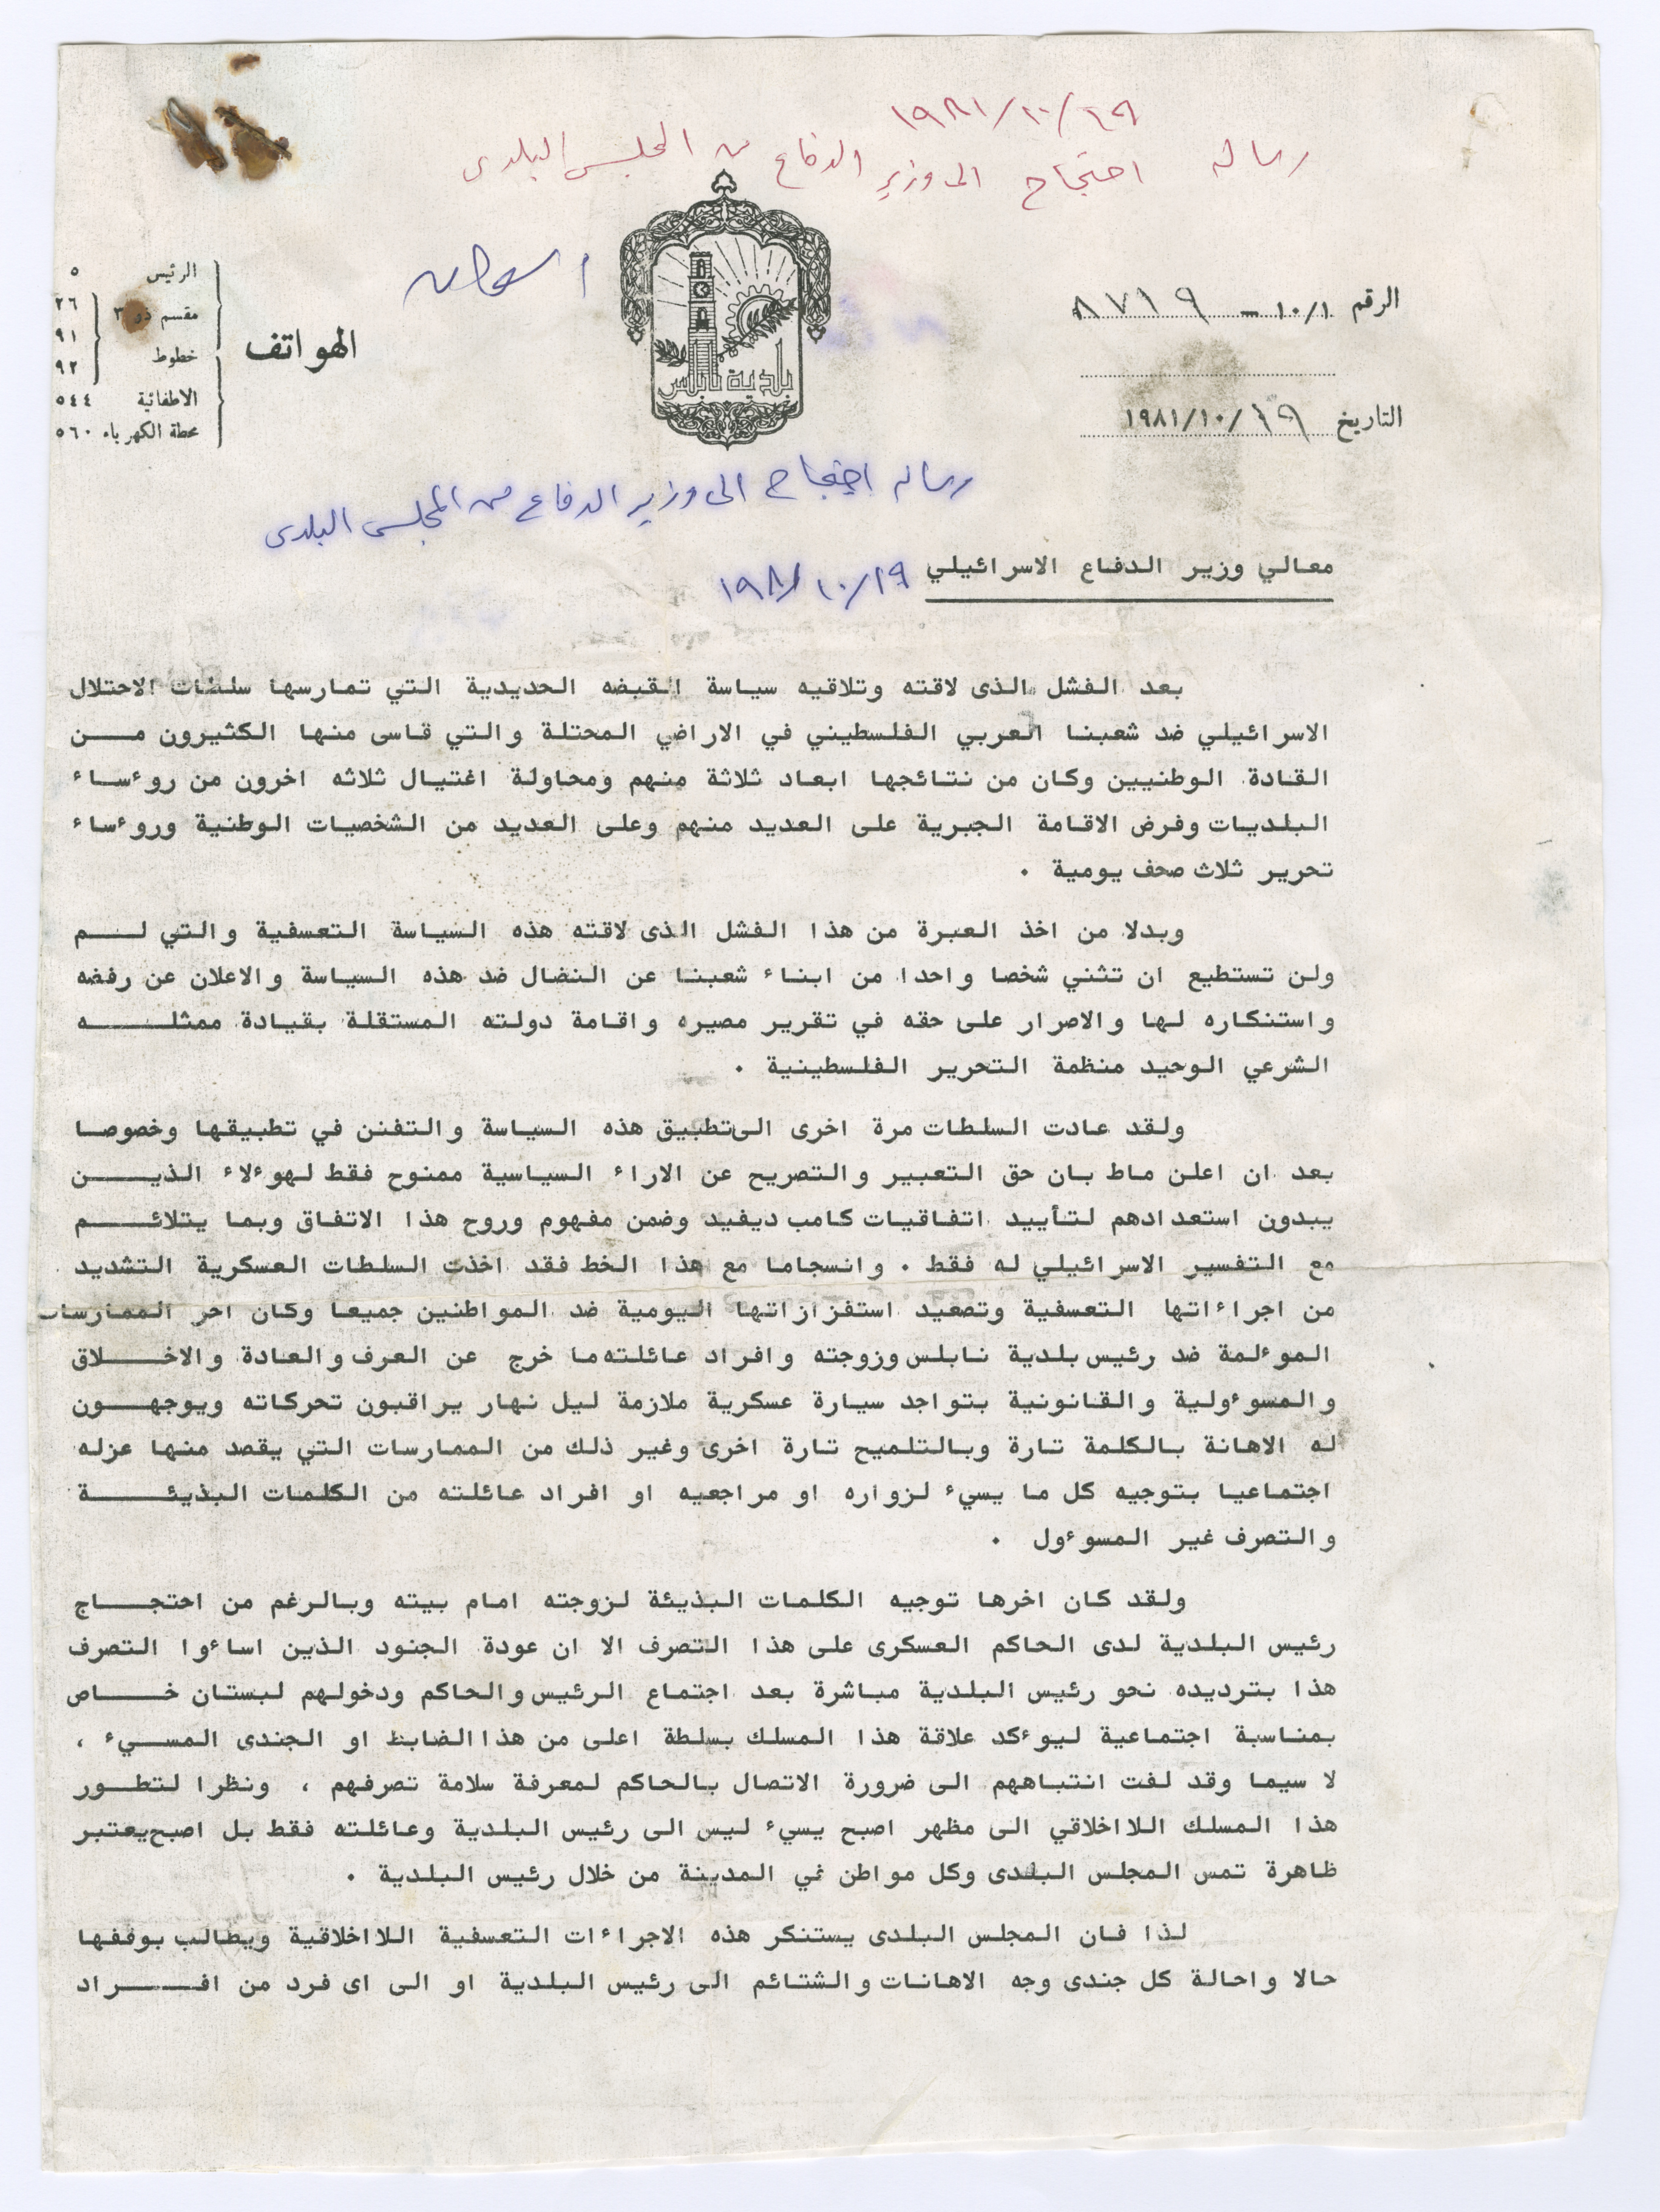 ١٩٨١/١٠/١٩
رساله احتجاج الى وزير الدفاع من المجلس البلدى
الرقم ١٠/١ – ٨٧١٩
التاريخ ١٩٨١/١٠/١٩
بلدية نابلس
الهواتف
الرئيس ٥
مقسم ذو ٣ ٢٦
٩١
خطوط ٩٢
الاطفائية ٥٤٤
محطة الكهرباء ٥٦٠
رساله احتجاج الى وزير الدفاع من المجلس البلدى
معالي وزير الدفاع الاسرائيلي ١٩٨١/١٠/١٩
بعد الفشل الذى لاقته وتلاقيه سياسة القبضه الحديدية التي تمارسها سلطات الاحتلال
الاسرائيلي ضد شعبنا العربي الفلسطيني في الاراضي المحتلة والتي قاسى منها الكثيرون مـــن
القادة الوطنيين وكان من نتائجها ابعاد ثلاثة منهم ومحاولة اغتيال ثلاثه اخرون من روءساء
البلديات وفرض الاقامة الجبرية على العديد منهم وعلى العديد من الشخصيات الوطنية وروءساء
تحرير ثلاث صحف يومية .
وبدلا من اخذ العبرة من هذا الفشل الذى لاقته هذه السياسة التعسفية والتي لـــم
ولن تستطيع ان تثني شخصا واحدا من ابناء شعبنا عن النضال ضد هذه السياسة والاعلان عن رفضه
واستنكاره لها والاصرار على حقه في تقرير مصيره واقامة دولته المستقلة بقيادة ممثلـــه
الشرعي الوحيد منظمة التحرير الفلسطينية .
ولقد عادت السلطات مرة اخرى الى تطبيق هذه السياسة والتفنن في تطبيقها وخصوصا
بعد ان اعلن ماط بان حق التعبير والتصريح عن الاراء السياسية ممنوح فقط لهوءلاء الذيـــن
يبدون استعدادهم لتأييد اتفاقيات كامب ديفيد وضمن مفهوم وروح هذا الاتفاق وبما يتلائـــم
مع التفسير الاسرائيلي له فقط . وانسجاما مع هذا الخط فقد اخذت السلطات العسكرية التشديد
من اجراءاتها التعسفية وتصعيد استفزازاتها اليومية ضد المواطنين جميعا وكان اخر الممارسات
الموءلمة ضد رئيس بلدية نابلس وزوجته وافراد عائلته ما خرج عن العرف والعادة والاخـــلاق
والمسوءولية والقانونية بتواجد سيارة عسكرية ملازمة ليل نهار يراقبون تحركاته ويوجهـــون
له الاهانة بالكلمة تارة وبالتلميح تارة اخرى وغير ذلك من الممارسات التي يقصد منها عزله
اجتماعيا بتوجيه كل ما يسيء لزواره او مراجعيه او افراد عائلته من الكلمات البذيئـــة
والتصرف غير المسوءول .
ولقد كان اخرها توجيه الكلمات البذيئة لزوجته امام بيته وبالرغم من احتجـــاج
رئيس البلدية لدى الحاكم العسكرى على هذا التصرف الا ان عودة الجنود الذين اساءوا التصرف
هذا بترديده نحو رئيس البلدية مباشرة بعد اجتماع الرئيس والحاكم ودخولهم لبستان خـــاص
بمناسبة اجتماعية ليوءكد علاقة هذا المسلك بسلطة اعلى من هذا الضابط او الجندى المســيء ،
لا سيما وقد لفت انتباههم الى ضرورة الاتصال بالحاكم لمعرفة سلامة تصرفهم ، ونظرا لتطـــور
هذا المسلك اللااخلاقي الى مظهر اصبح يسيء ليس الى رئيس البلدية وعائلته فقط بل اصبح يعتبر
ظاهرة تمس المجلس البلدى وكل مواطن في المدينة من خلال رئيس البلدية .
لذا فان المجلس البلدى يستنكر هذه الاجراءات التعسفية اللااخلاقية ويطالب بوقفها
حالا واحالة كل جندى وجه الاهانات والشتائم الى رئيس البلدية او الى اى فرد من افـــراد